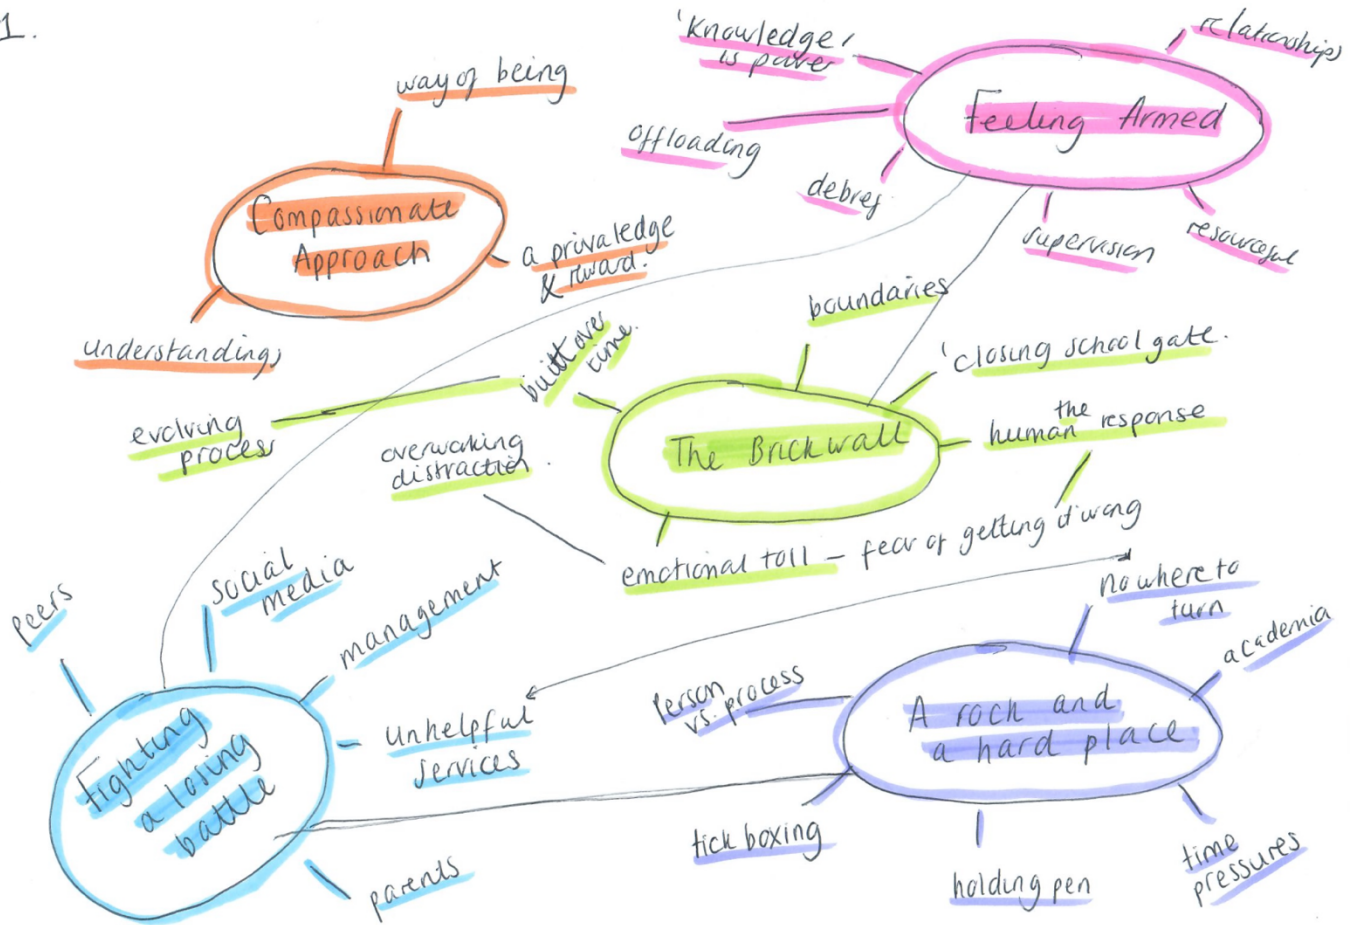 1.
way of being
Compassionate
Approach
a privaledge
& reward.
understanding
'Knowledge'
is power
relationships
Feeling Armed
offloading
debrief
supervision
resourceful
boundaries
'closing school gate.
built over
time.
evolving
process
The Brickwall
the
human response
overworking
distraction.
emotional toll - fear of getting it wrong
peers
social
media
management
Unhelpful
services
Fighting
a losing
battle
parents
no where to
turn
academia
Person
vs. process
A rock and
a hard place
tick boxing
holding pen
time
pressures